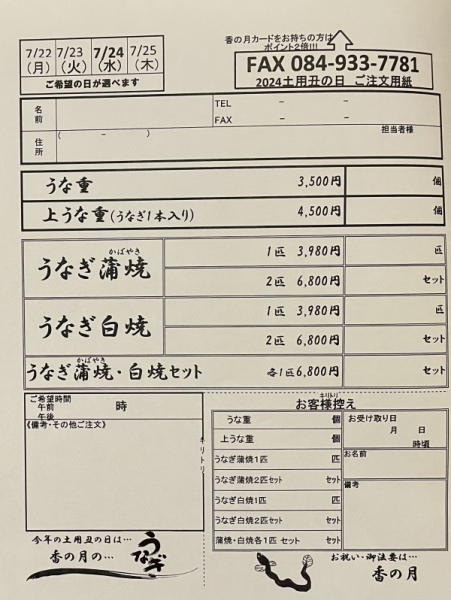 香の月カードをお持ちの方は
ポイント2倍!!!
7/22 7/23 7/24 7/25
(月) (火) (水) (木)
ご希望の日が選べます
FAX 084-933-7781
2024土用丑の日 ご注文用紙
名前
TEL － －
FAX － －
住所
( － )
担当者様
うな重 3,500円 個
上うな重(うなぎ1本入り) 4,500円 個
かばやき
うなぎ蒲焼
1匹 3,980円 匹
2匹 6,800円 セット
うなぎ白焼
1匹 3,980円 匹
2匹 6,800円 セット
かばやき
うなぎ蒲焼・白焼セット 各1匹6,800円 セット
ご希望時間
午前
午後
時
《備考・その他ご注文》
キリトリ
キリトリ
お客様控え
うな重 個
上うな重 個
うなぎ蒲焼1匹 匹
うなぎ蒲焼2匹セット セット
うなぎ白焼1匹 匹
うなぎ白焼2匹セット セット
蒲焼・白焼各1匹 セット セット
お受け取り日
月 日
時頃
お名前
備考
今年の土用丑の日は…
香の月の…
うなぎ
お祝い・御注文は…
香の月